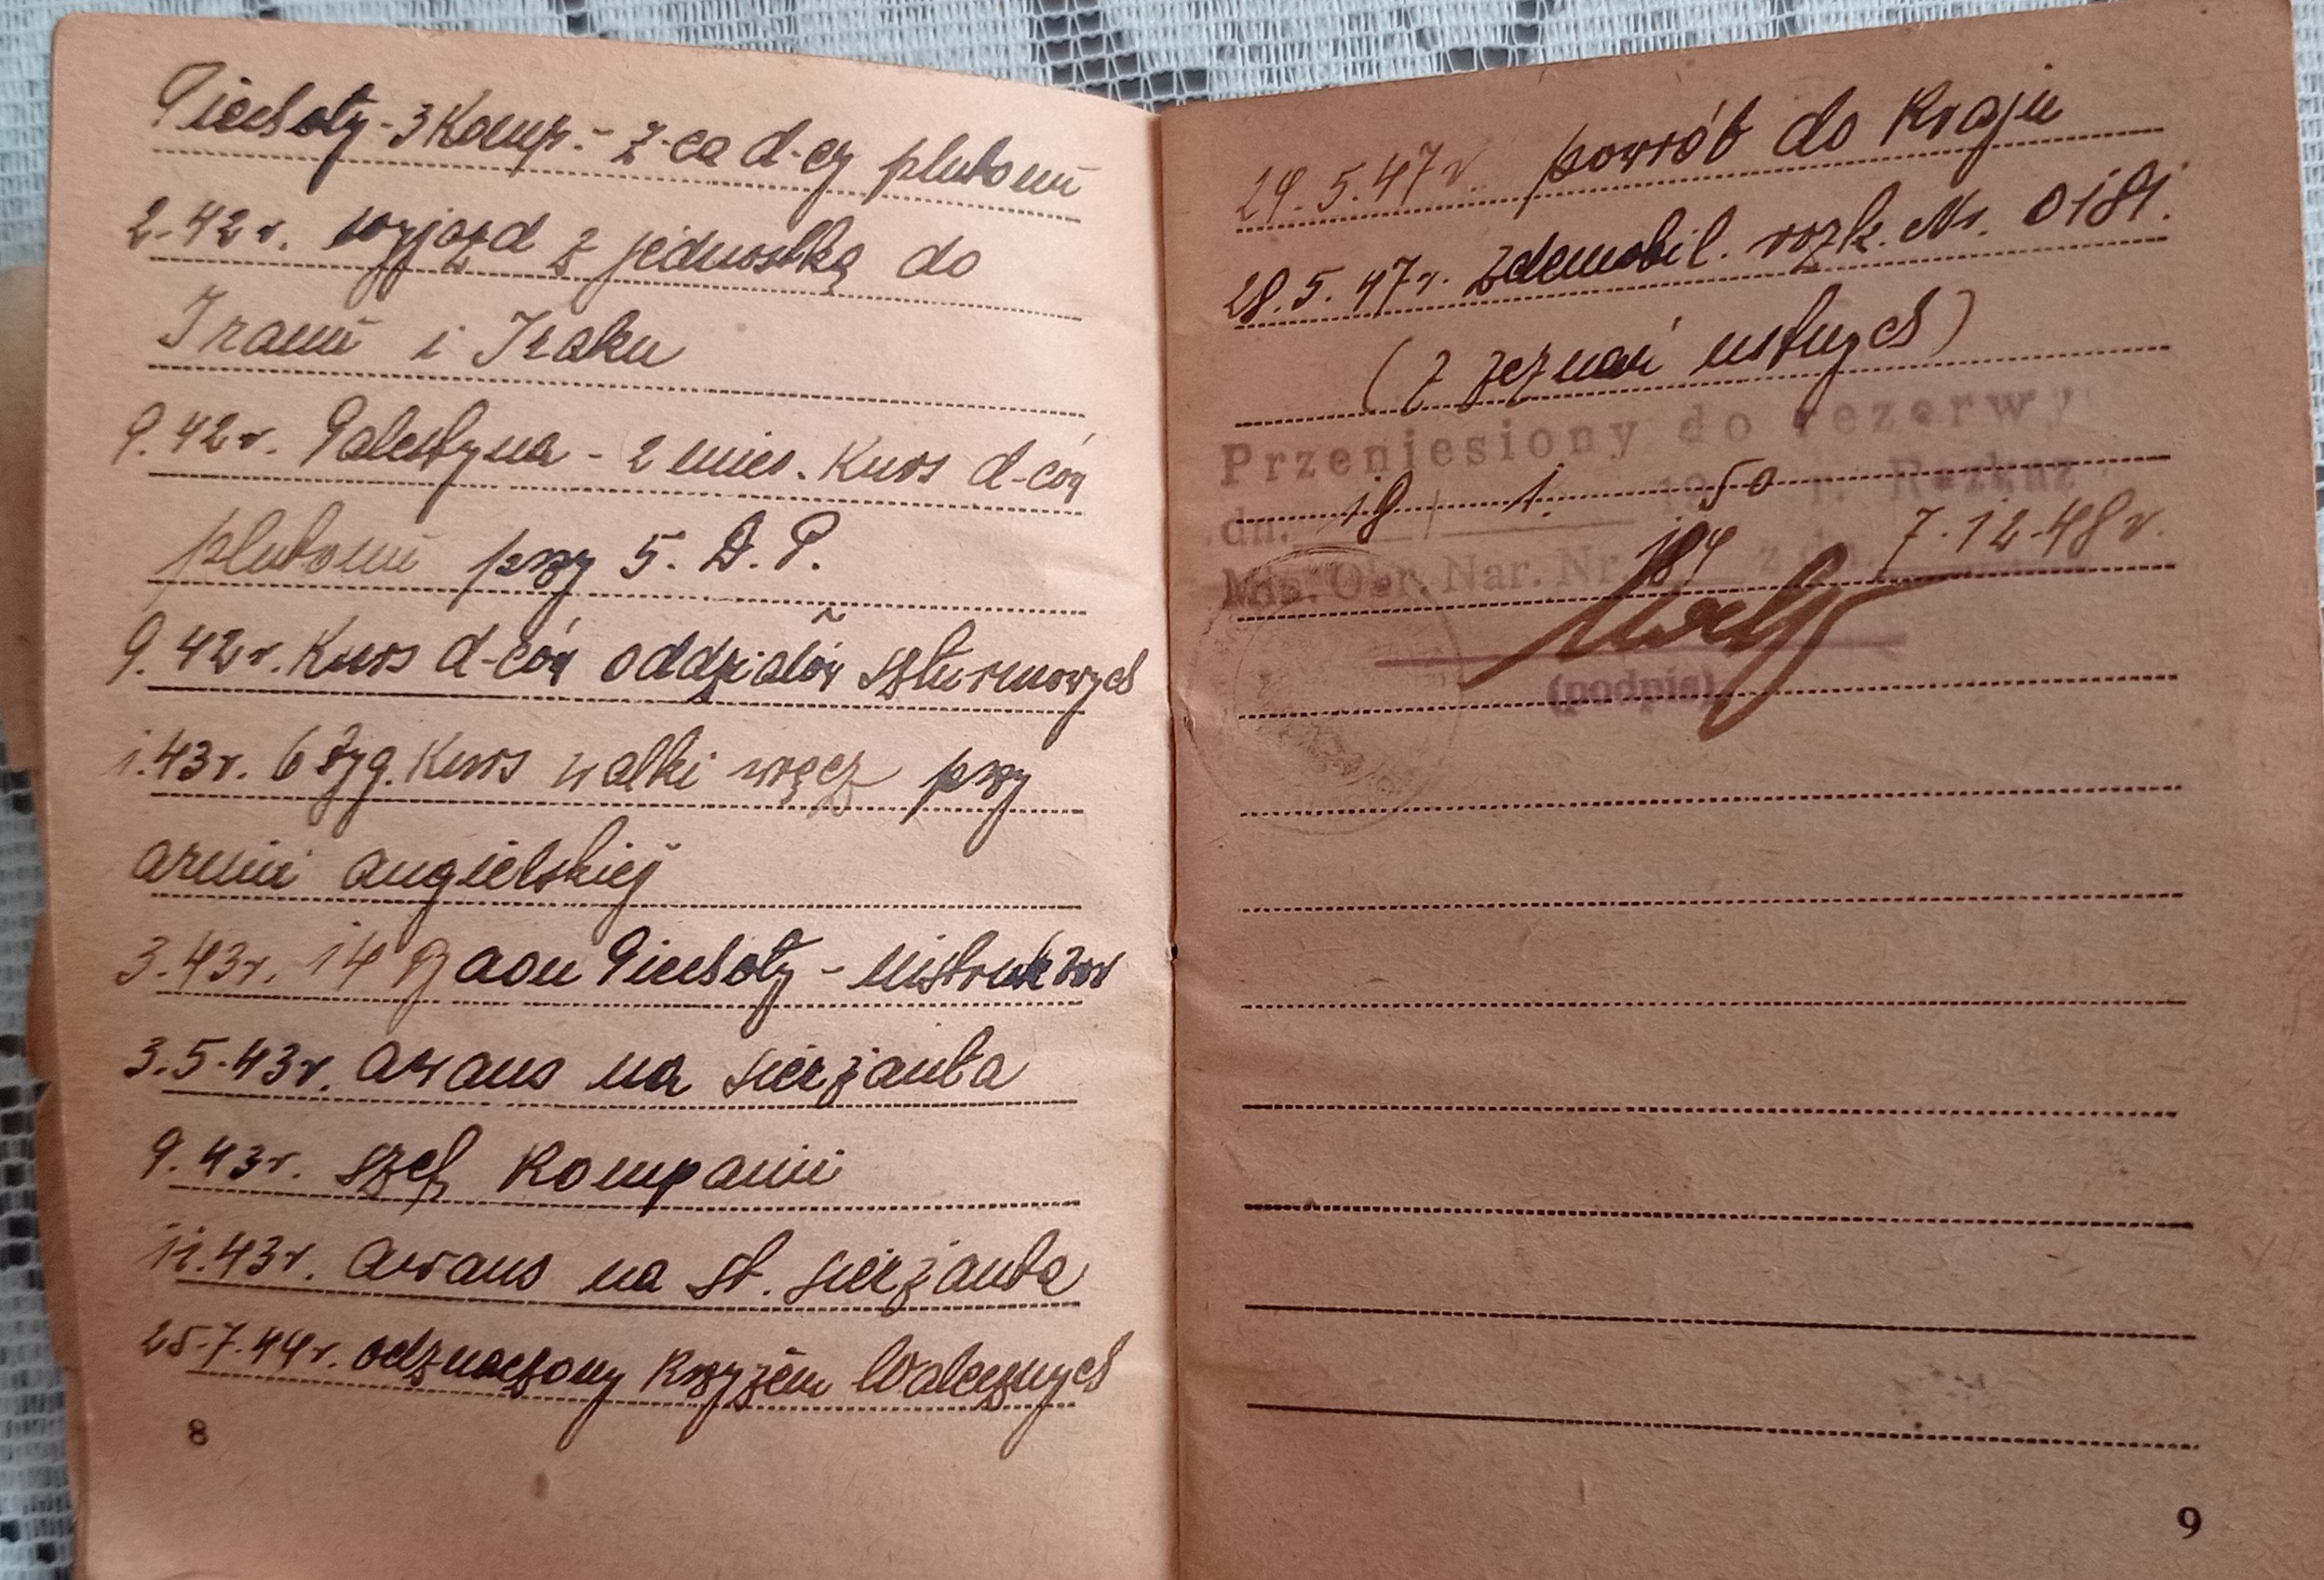 Piechoty - 3 Komp. - z-ca d-cy plutonu
2.42 r. wyjazd z jednostką do
Iranu i Iraku
9.42 r. Palestyna - 2 mies. Kurs d-ców
plutonu przy 5. D. P.
9.42 r. Kurs d-ców oddziałów szturmowych
1.43 r. 6 tyg. Kurs walki wręcz przy
armii angielskiej
3.43 r. 14 Baon Piechoty - instruktor
3.5.43 r. awans na sierżanta
9.43 r. szef Kompanii
11.43 r. awans na st. sierżanta
25.7.44 r. odznaczony Krzyżem Walecznych
8
29.5.47 r. powrót do Kraju
28.5.47 r. zdemobil. rozk. Nr. 0181.
(z zeznań ustnych)
Przeniesiony do rezerwy
dn. 18 / 1. 1950 r. Rozkaz
Min. Obr. Nar. Nr. 184 z dn. 7.12.48 r.
(podpis)
9